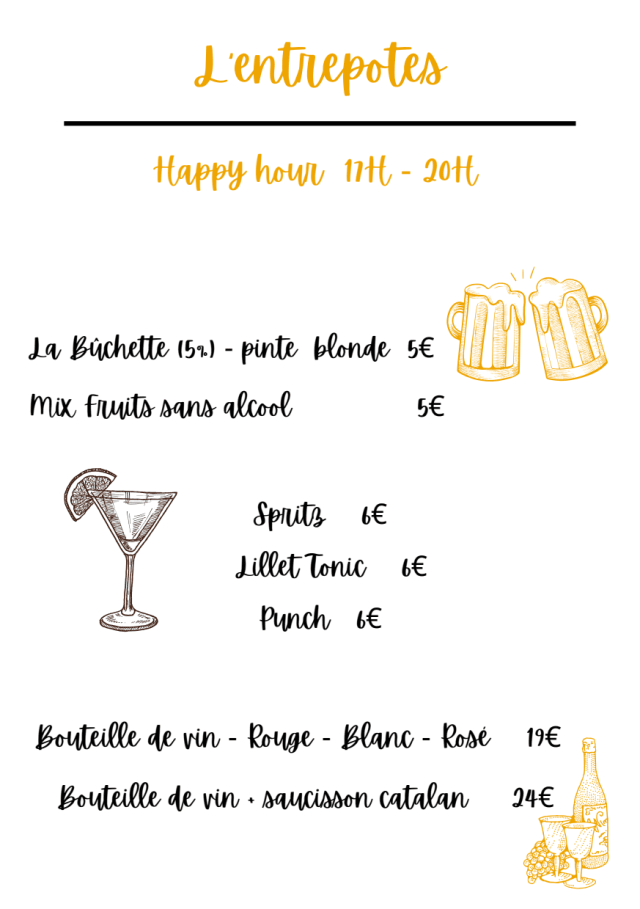 L'entrepotes
Happy hour 17H - 20H
La Bûchette (5%) - pinte blonde 5€
Mix Fruits sans alcool 5€
Spritz 6€
Lillet Tonic 6€
Punch 6€
Bouteille de vin - Rouge - Blanc - Rosé 19€
Bouteille de vin + saucisson catalan 24€